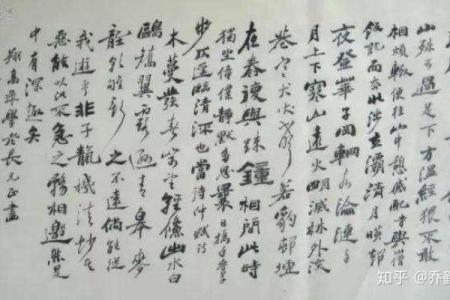 山殊可過足下方温經猥不敢
相煩輒便往山中憩感配寺與山僧
飯訖而去北涉玄灞清月映郭
夜登華子岡輞水淪漣與
月上下寒山遠火明滅林外深
巷寒犬吠聲若豹邨墟
夜舂復與疎鐘相間此時
獨坐僮僕静默多思曩昔攜手
步仄徑臨清流也當待
木蔓發春山可望輕鯈出水白
鷗矯翼露濕青皋麥
隴朝雊斯之不遠倘能從
我遊乎非子天機清妙者
豈能以此不急之務相邀然是
中有深趣矣
知乎 @乔